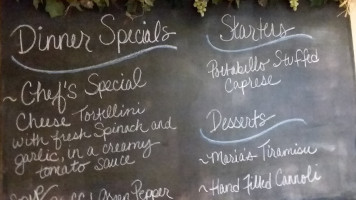 Dinner Specials
~ Chef's Special
Cheese Tortellini
with fresh Spinach and
garlic, in a creamy
tomato sauce
Pepper
Starters
Portabillo Stuffed
Caprese
Desserts
~ Maria's Tiramisu
~ Hand Filled Cannoli